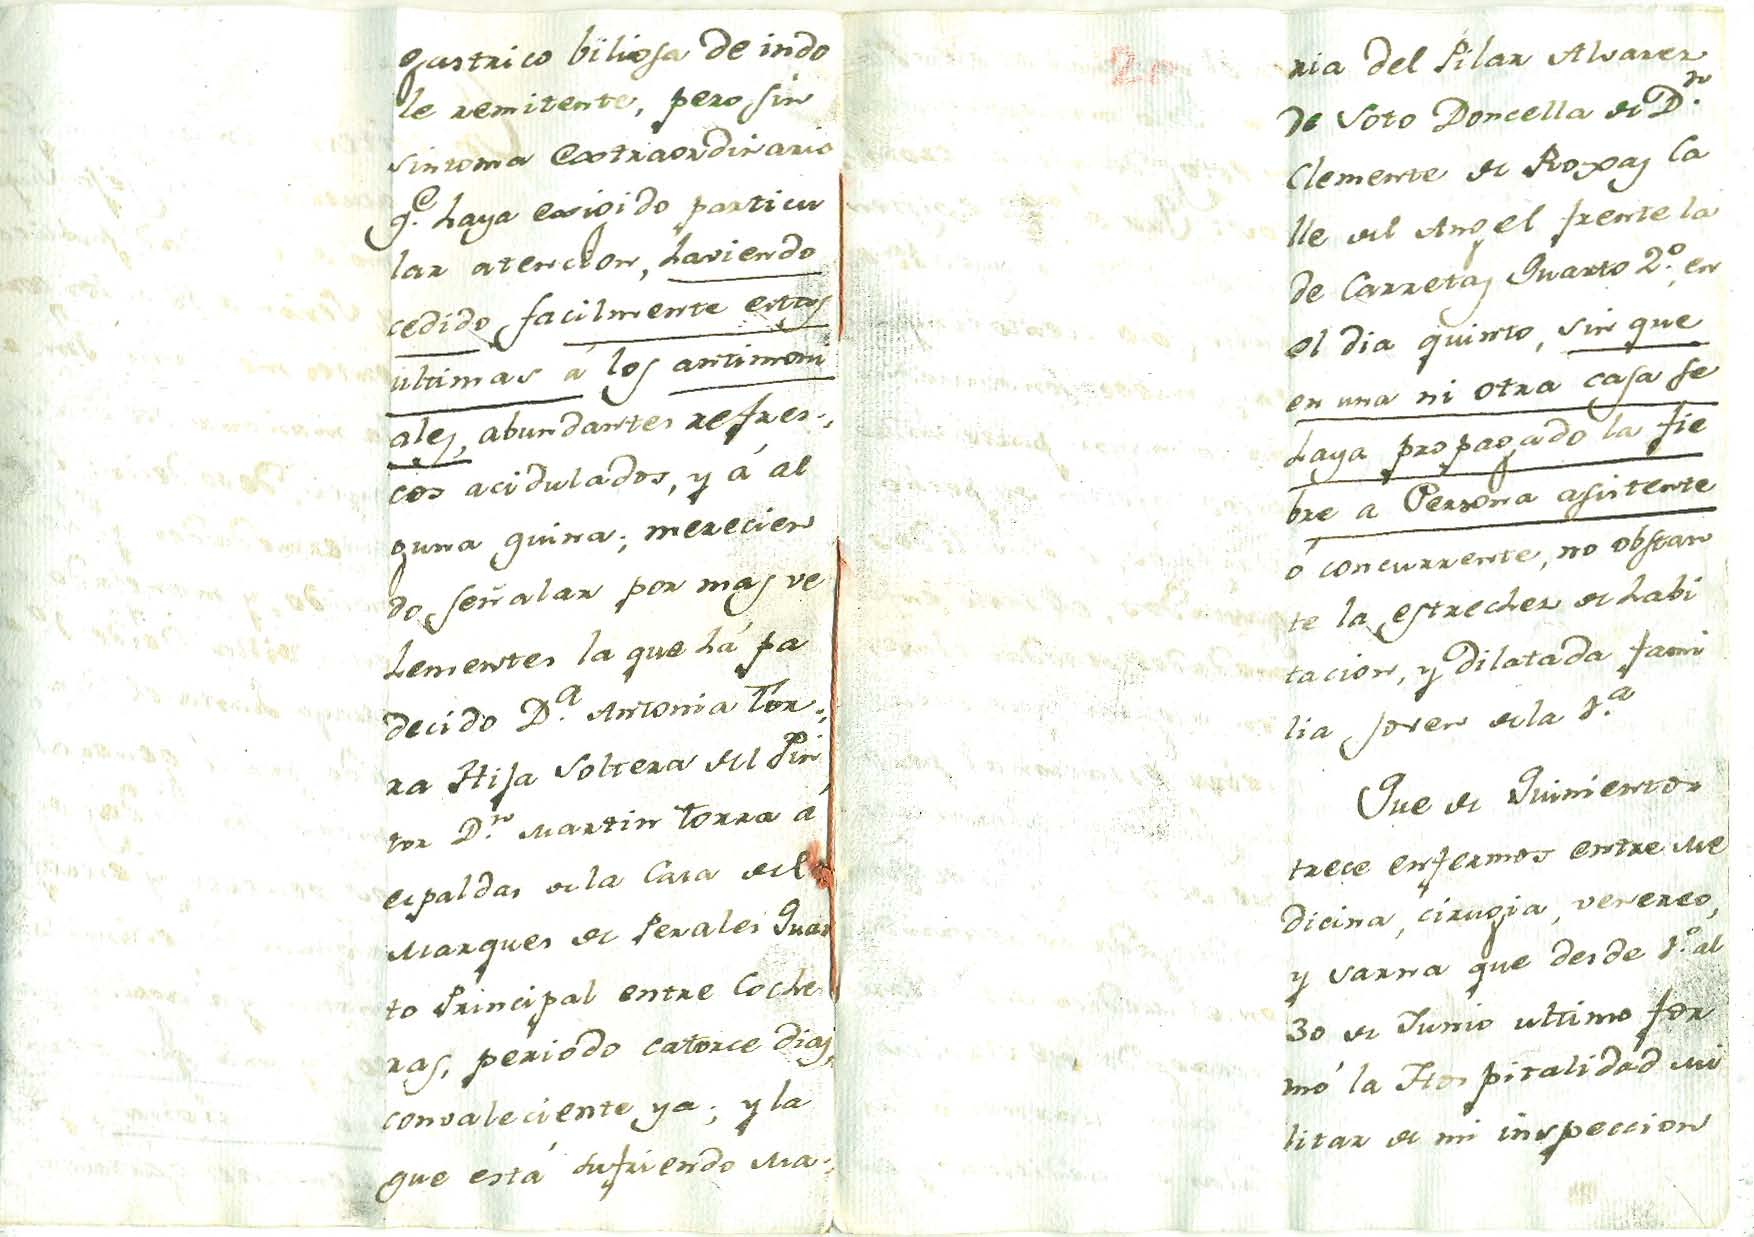 gastrico biliosa de indo
le remitente, pero sin
sintoma extraordinario
q.e haya exigido particu
lar atencion, haviendo
cedido facilmente estas
ultimas á los antimoni
ales, abundantes refres-,
cos acidulados, y á al
guna quina; merecien
do señalar por mas ve
hementes la que há pa
decido D.a Antonia Tor-,
ra Hija soltera del Pin
tor D.n Martin Torra á
espaldas de la Casa del
Marques de Perales Quar
to Principal entre Coche
ras, periodo catorce dias,
convaleciente ya; y la
que está sufriendo Ma-,
2,
ria del Pilar Alvarez
de Soto Doncella de D.n
Clemente de Roxas Ca
lle del Angel frente la
de Carretas Quarto 2.o, en
el dia quinto, sin que
en una ni otra casa se
haya propagado la fie
bre a Persona asistente
ó concurrente, no obstan
te la estrechez de habi
tacion, y dilatada fami
lia joven de la 1.a
Que de Quinientos
trece enfermos entre Me
dicina, cirugia, venereo,
y sarna que desde 1.o al
30 de Junio ultimo for
mó la Hospitalidad Mi
litar de mi inspeccion